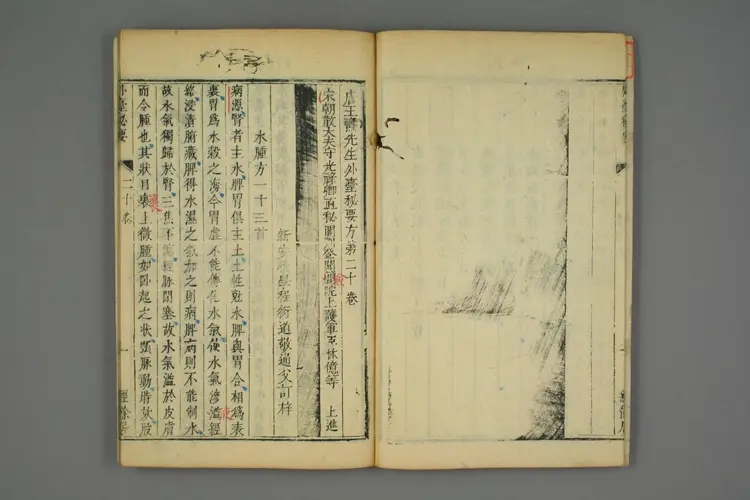 唐王燾先生外臺秘要方第二十卷
宋朝散大夫守光祿卿直秘閣判登聞檢院上護軍臣林億等 上進
新安後學程衍道敬通父訂梓
水腫方一十三首
病源腎者主水脾胃俱主土土性剋水脾與胃合相為表
裏胃為水穀之海今胃虛不能傳化水氣使水氣滲溢經
絡浸漬腑臟脾得水濕之氣加之則病脾病則不能制水
故水氣獨歸於腎三焦不瀉經脉閉塞故水氣溢於皮膚
而令腫也其狀目裹上微腫如卧起之狀頸脉動時欬股
外臺秘要
二十卷
一
經餘居